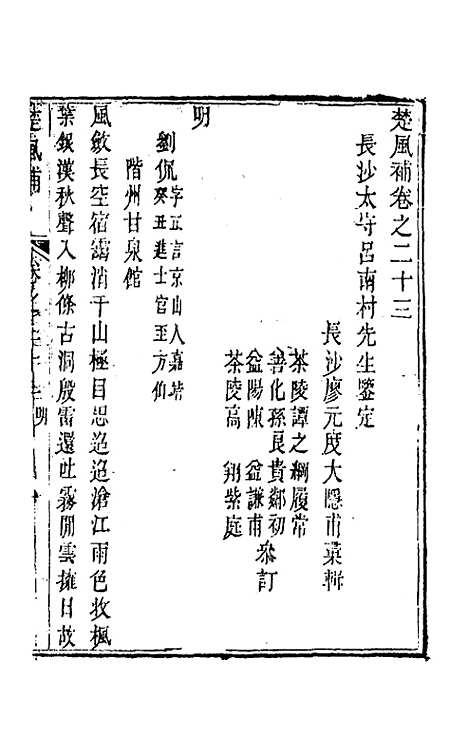 楚風補卷之二十三
長沙太守呂南村先生鑒定
長沙廖元度大隱甫菜輯
茶陵譚之綱履常
善化孫良貴鄰初
益陽陳　益謙甫
茶陵高　翔紫庭
叅訂
明
劉侃字正言京山人嘉靖
癸丑進士官至方伯
階州甘泉館
風斂長空宿靄消千山極目思迢迢滄江雨色收楓
葉銀漢秋聲入柳條古洞殷雷還吐霧閒雲擁日故
楚風補
明